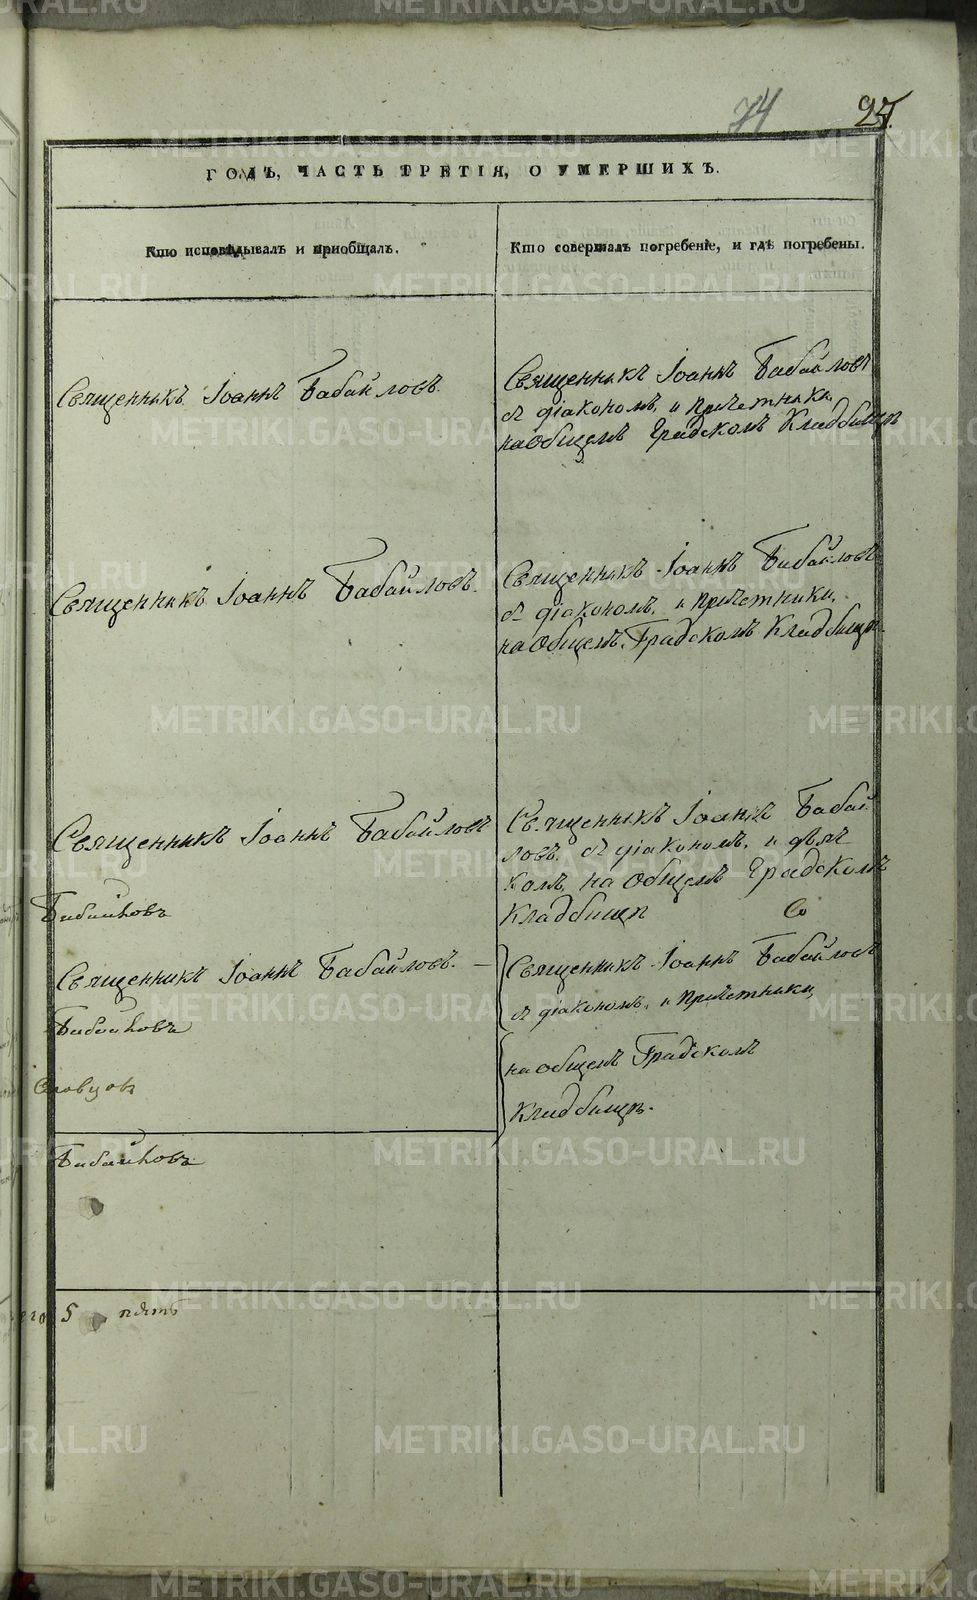 74 27.
ГОДЪ, ЧАСТЬ ТРЕТІЯ, О УМЕРШИХЪ.
Кто исповѣдывалъ и пріобщалъ.
Кто совершалъ погребеніе, и гдѣ погребены.
Священникъ Іоаннъ Бабайловъ
Священникъ Іоаннъ Бабайловъ
съ діакономъ, и причетники,
на общемъ Градскомъ Кладбищѣ
Священникъ Іоаннъ Бабайловъ.
Священникъ Іоаннъ Бабайловъ
съ діакономъ, и причетники,
на общемъ Градскомъ Кладбищѣ.
Священникъ Іоаннъ Бабайловъ
Священникъ Іоаннъ Бабай
ловъ, съ діакономъ, и дьяч
комъ, на общемъ Градскомъ
Кладбищѣ
Священникъ Іоаннъ Бабайловъ. —
Священникъ Іоаннъ Бабайловъ
съ діакономъ, и причетники,
на общемъ Градскомъ
Кладбищѣ.
5 пять
METRIKI.GASO-URAL.RU